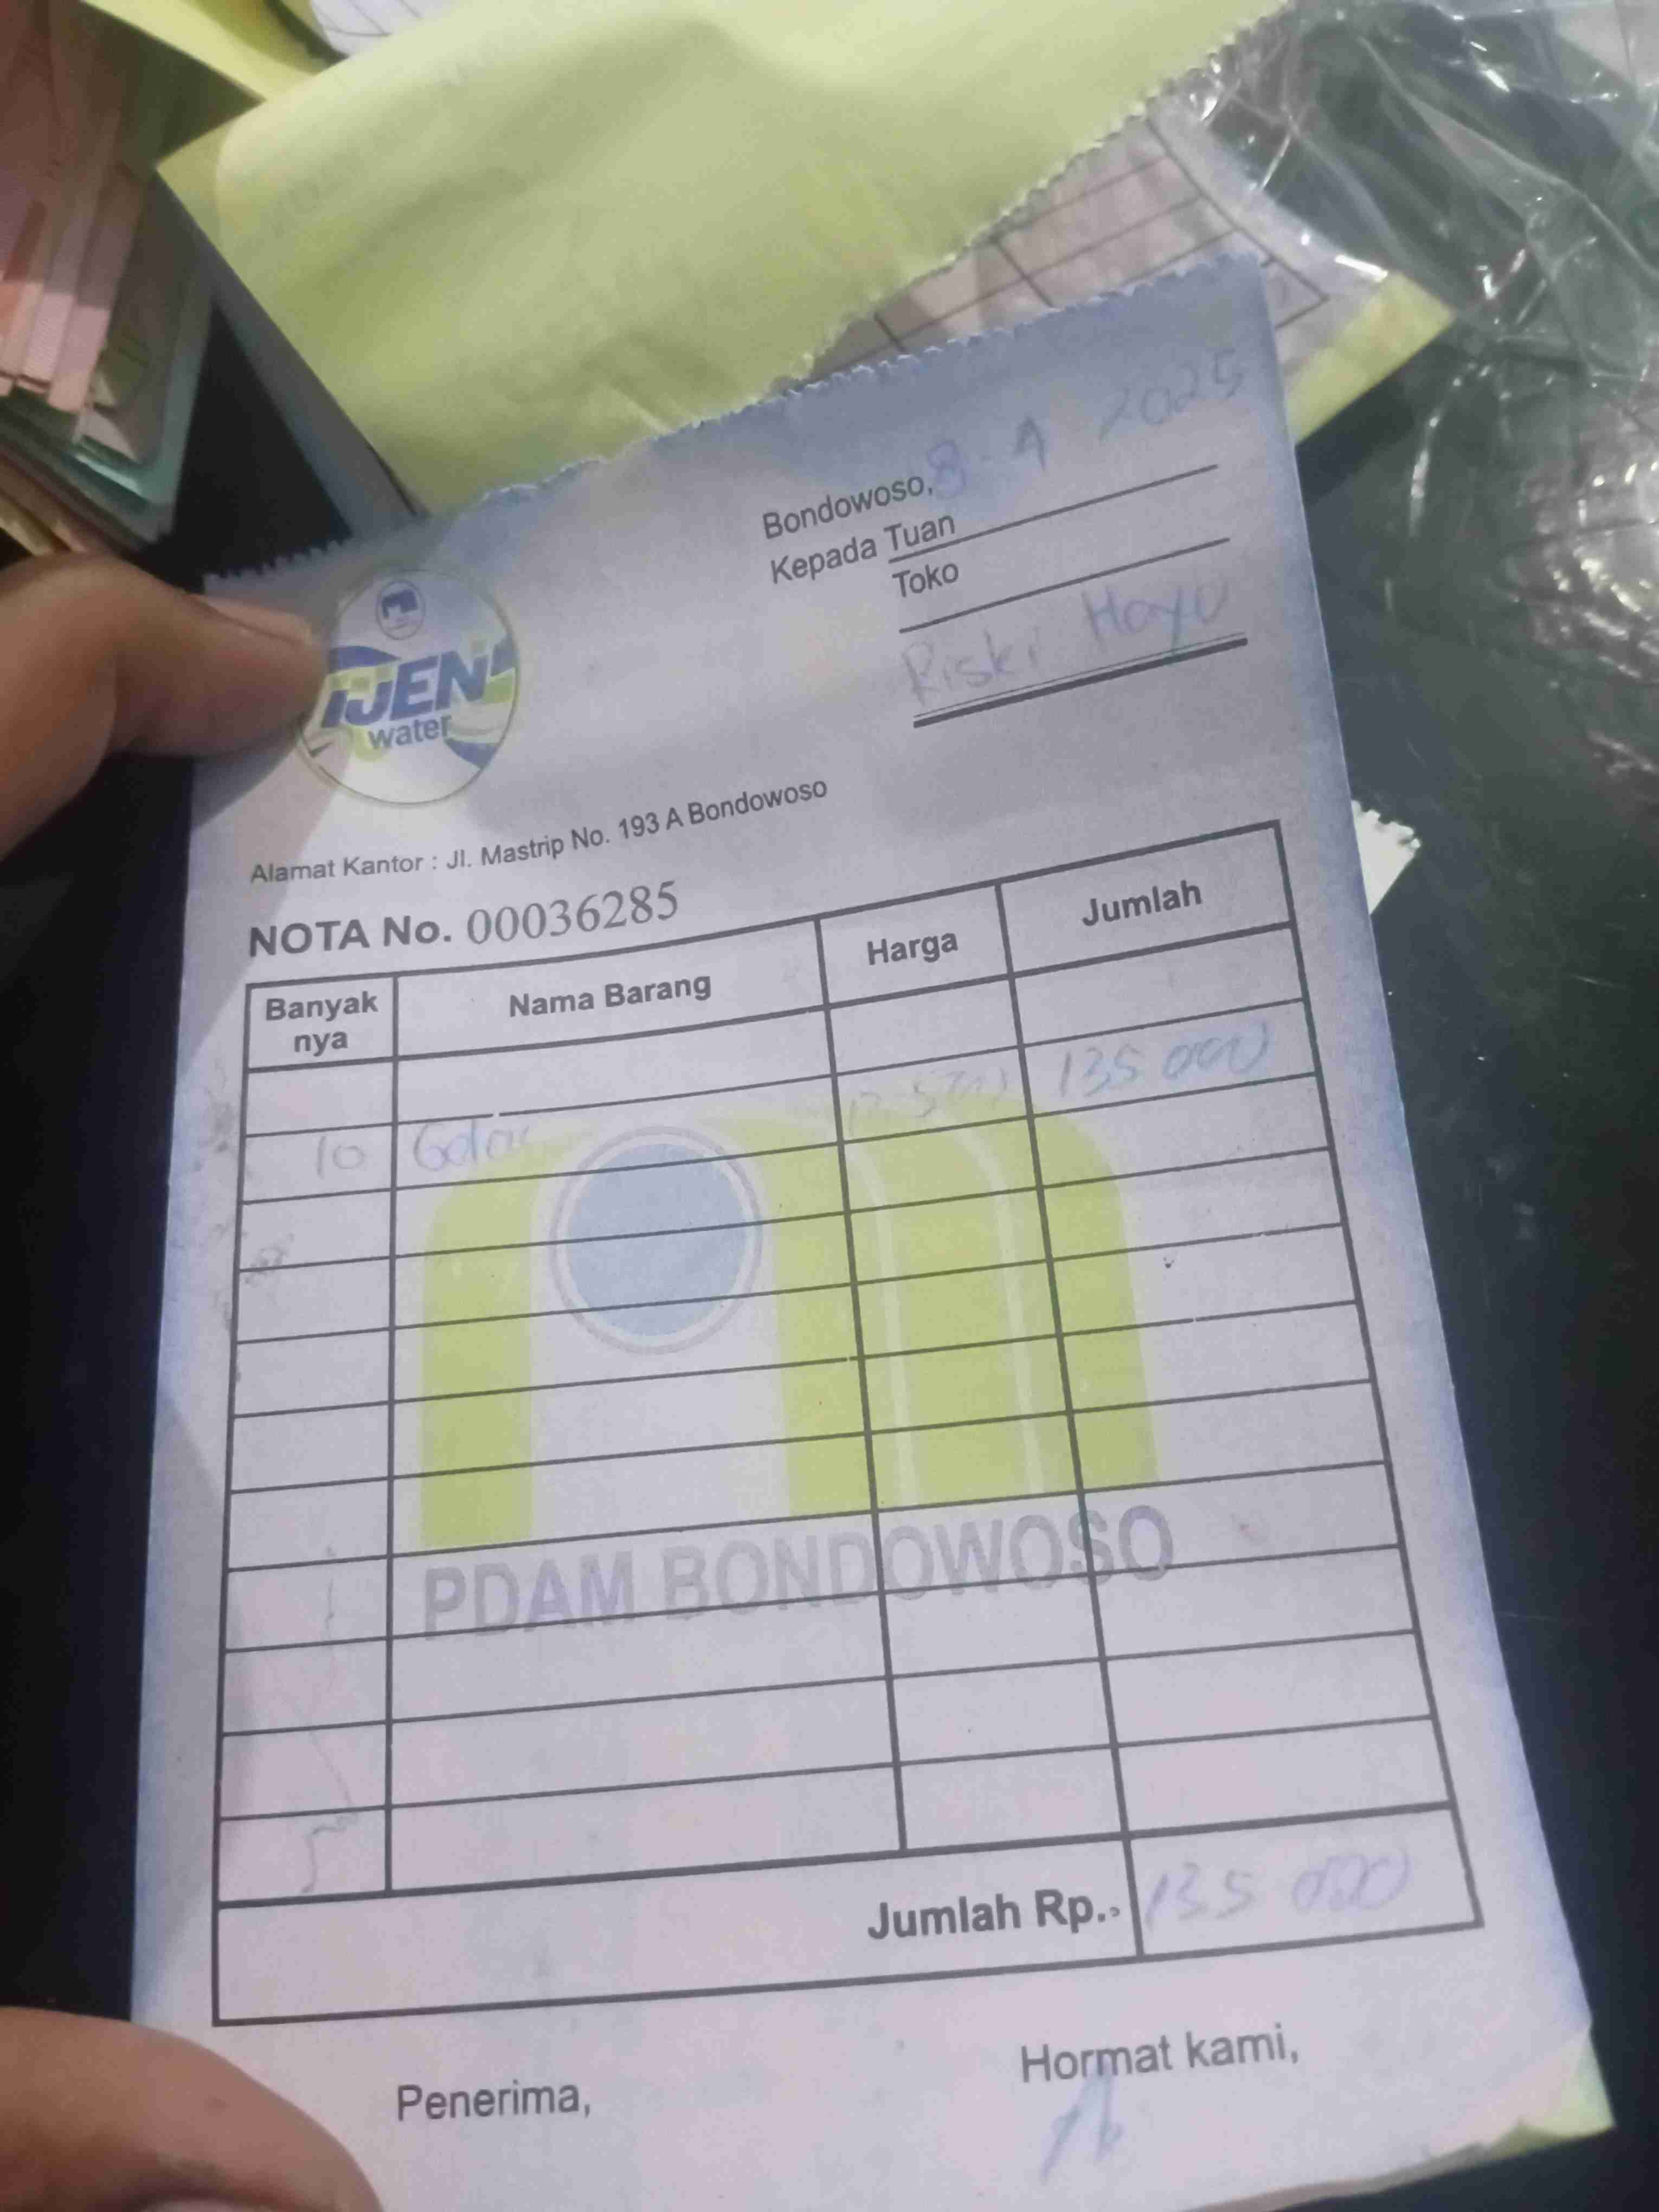 Bondowoso, 8-4 2025
Kepada Tuan
Toko
Riski Hayu
IJEN
water
Alamat Kantor : Jl. Mastrip No. 193 A Bondowoso
NOTA No. 00036285
Banyak nya Nama Barang Harga Jumlah
10 Gelas 13.500 135 000
PDAM BONDOWOSO
Jumlah Rp. 135 000
Penerima, Hormat kami,